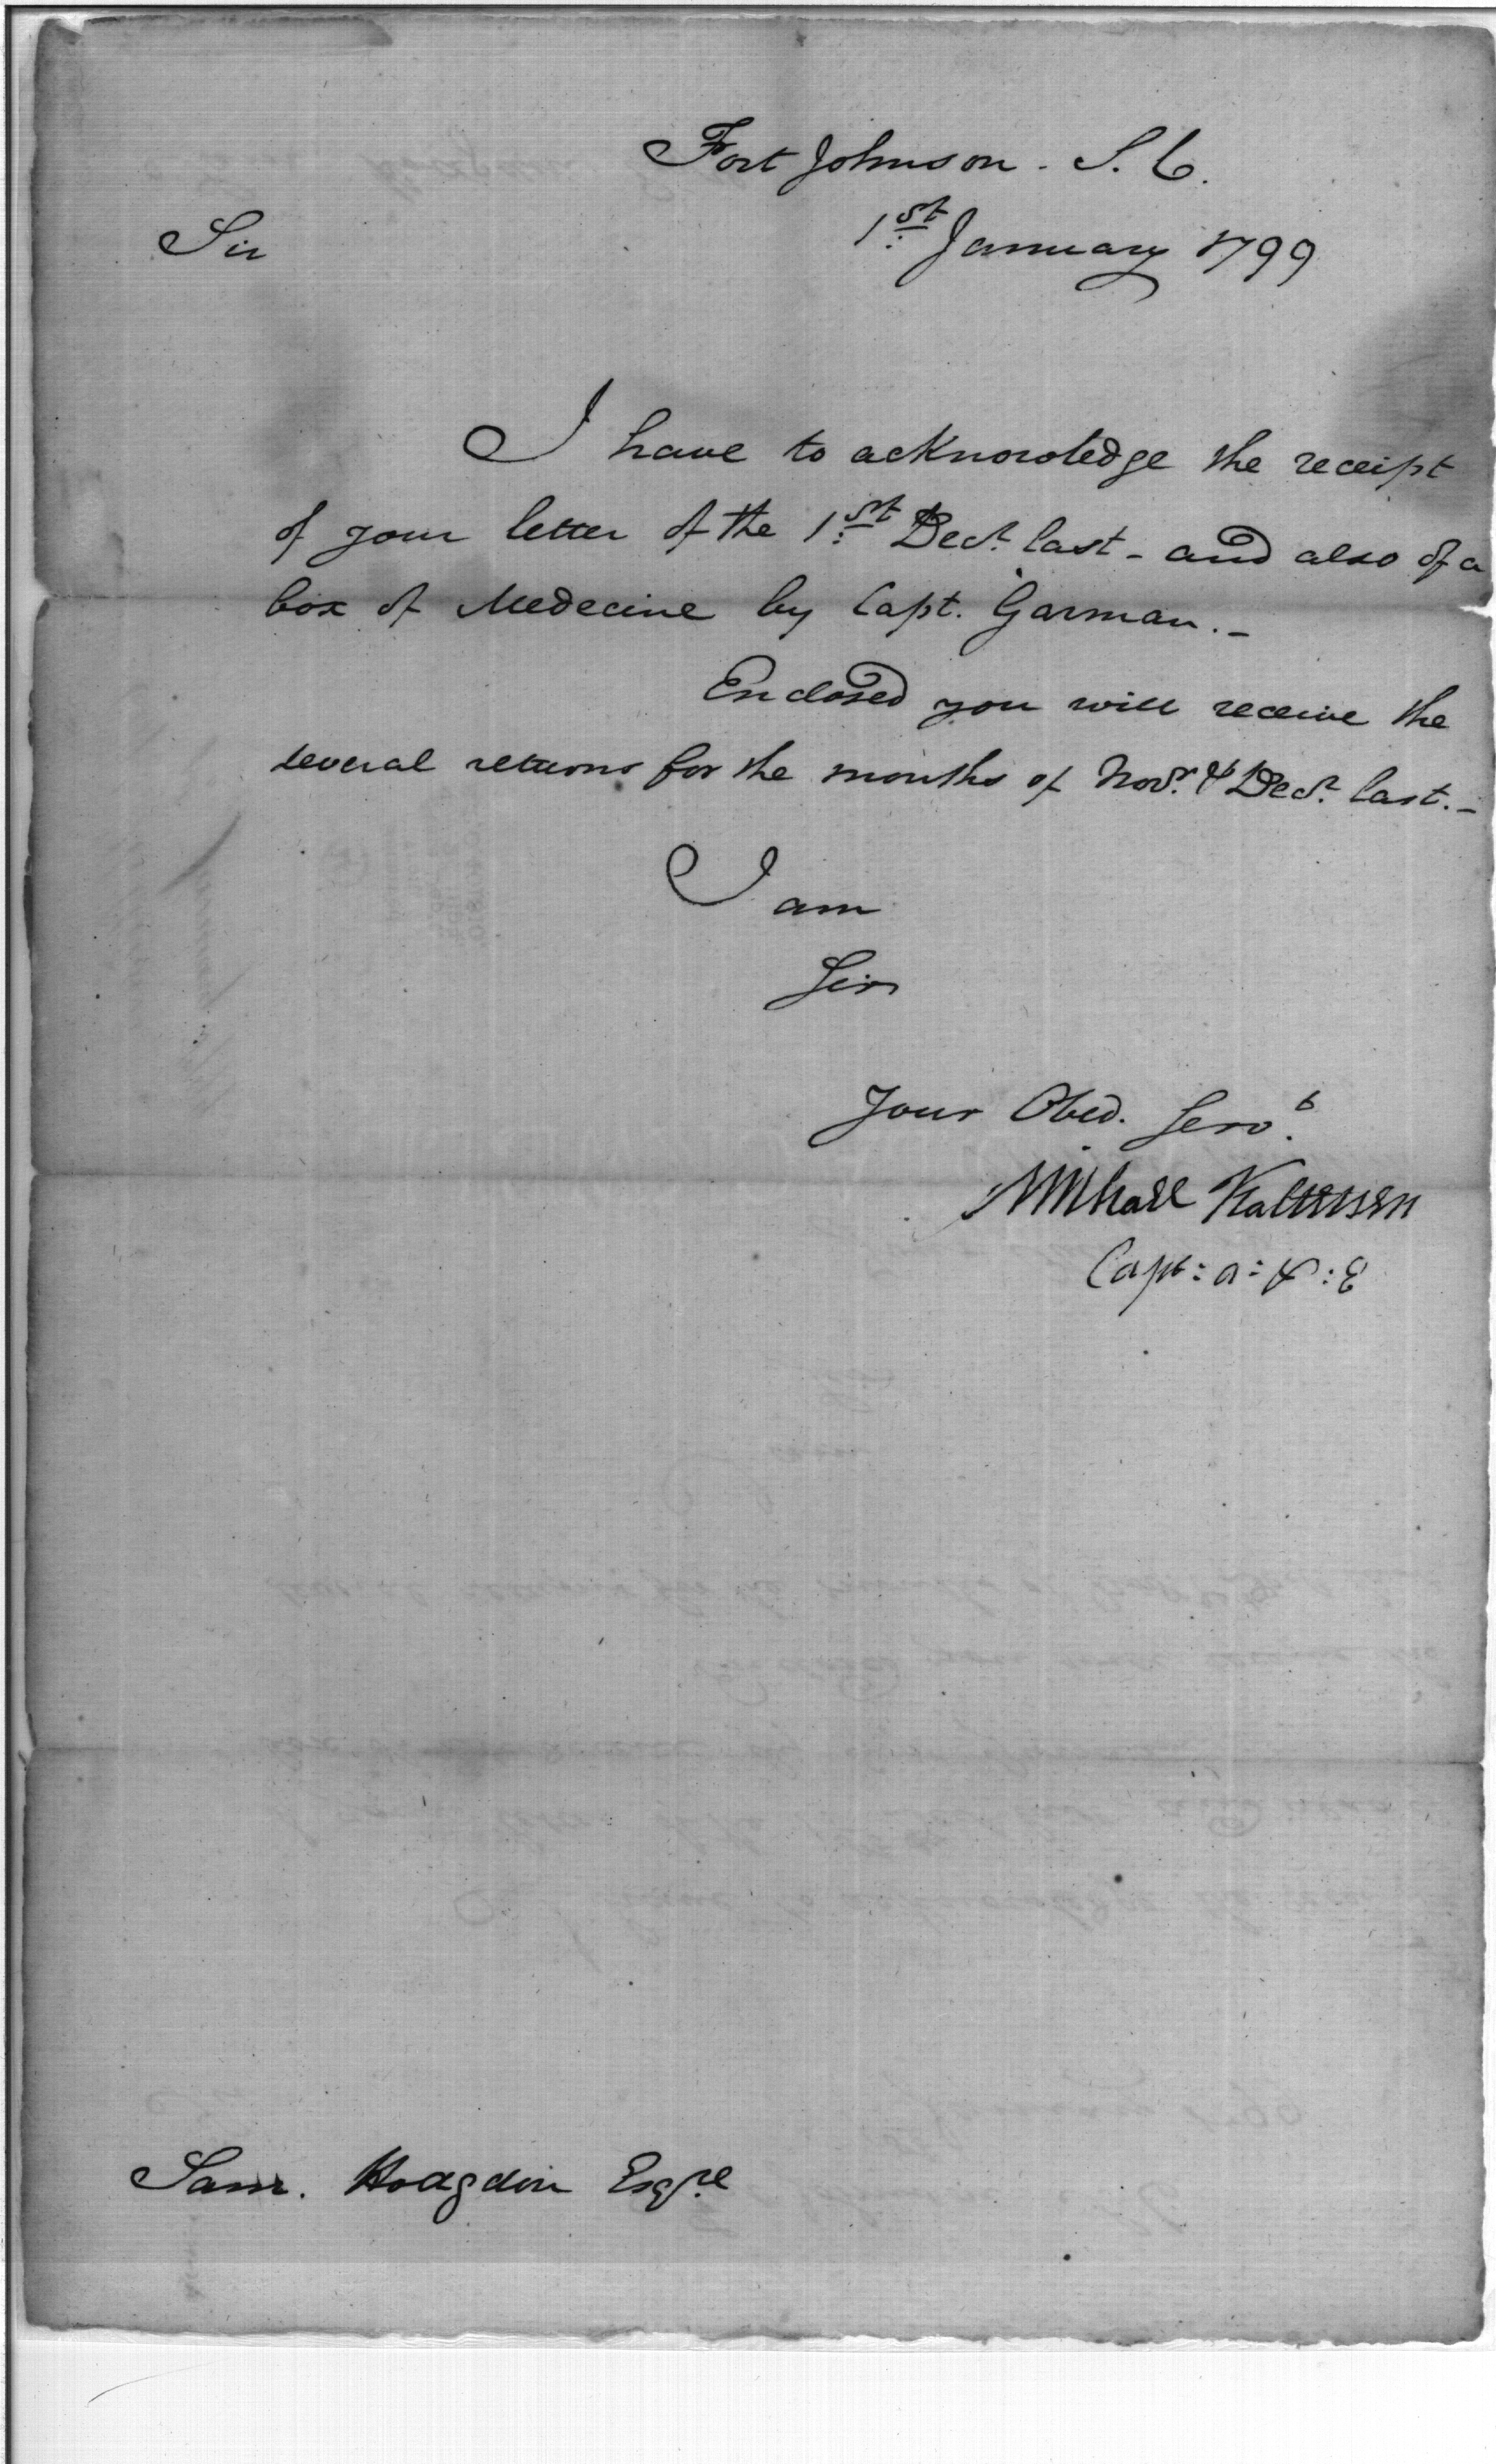 Fort Johnson - S. C.
1st January 1799
Sir
I have to acknowledge the receipt
of your letter of the 1st Decr. last - and also of a
box of Medecine by Capt. Garman. -
Enclosed you will receive the
several returns for the months of Novr. & Decr. last. -
I am
Sir
Your Obed. Servt.
Michael Kalteisen
Capt: a: & : E
Saml. Hodgdon Esqre